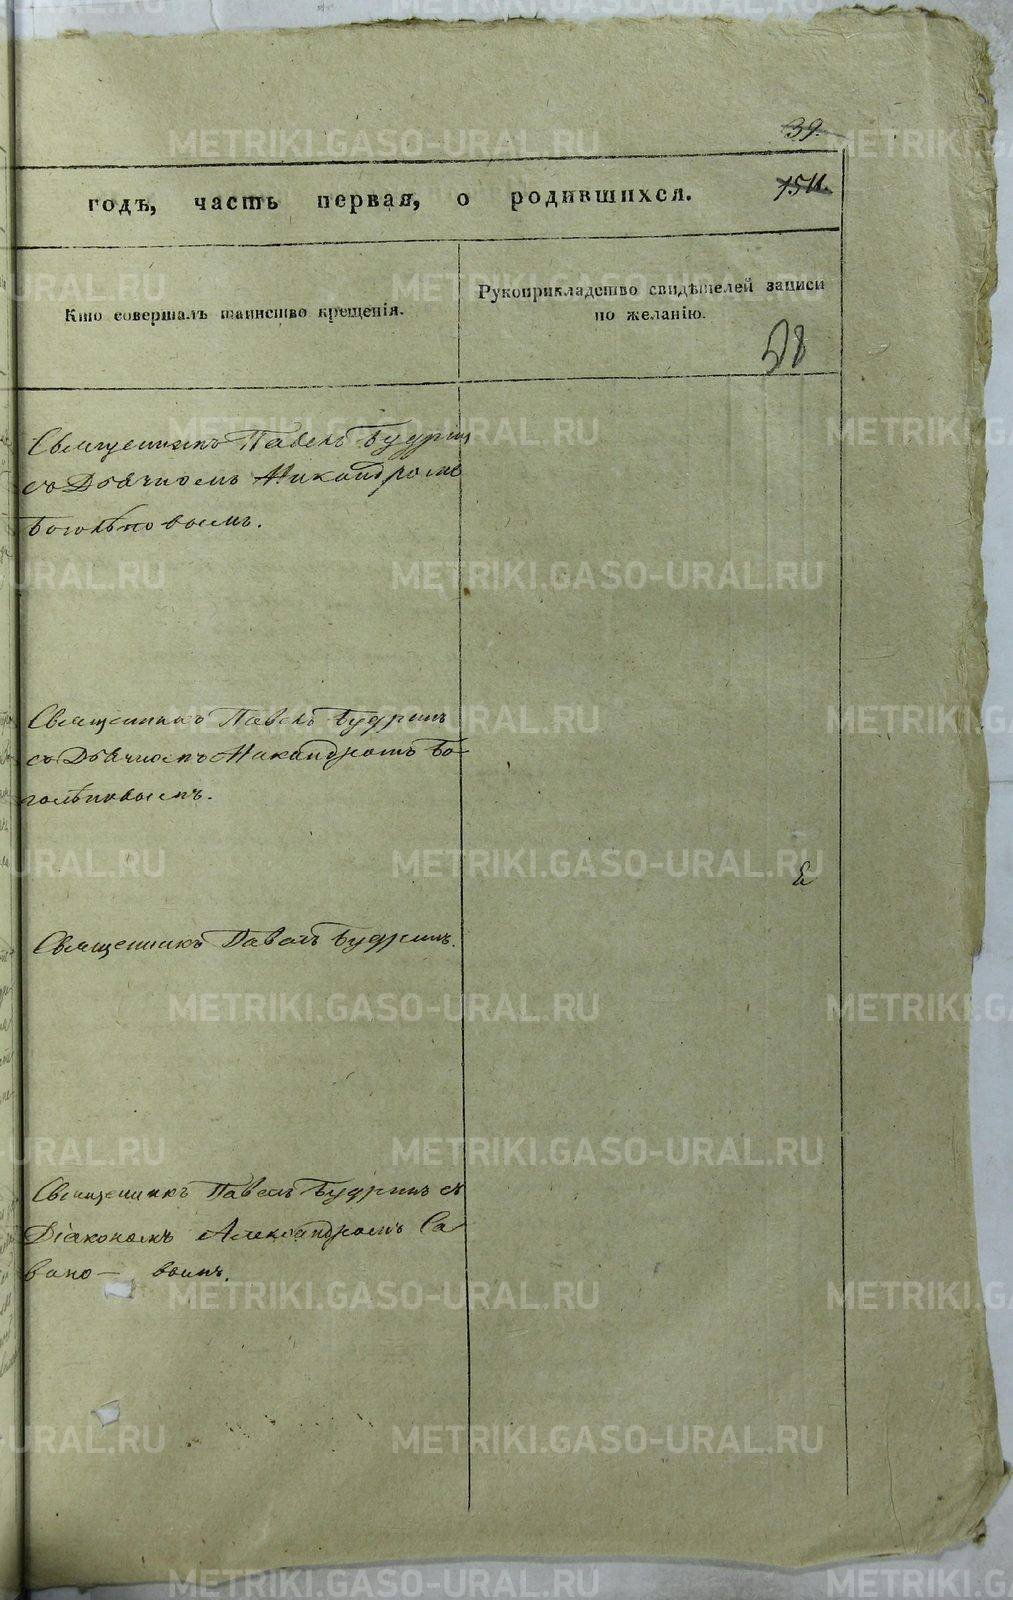 39.
годъ, часть первая, о родившихся.
1511.
Кто совершалъ таинство крещенія.
Рукоприкладство свидѣтелей записи
по желанію.
58
Священникъ Павелъ Будрин
съ Дьячкомъ Никандромъ
Боголѣповымъ.
Священникъ Павелъ Будринъ
съ Дьячкомъ Никандромъ Бо-
голѣповымъ.
Священникъ Павелъ Будринъ.
Священникъ Павелъ Будринъ съ
Діакономъ Александромъ Са
вано— вымъ.
METRIKI.GASO-URAL.RU